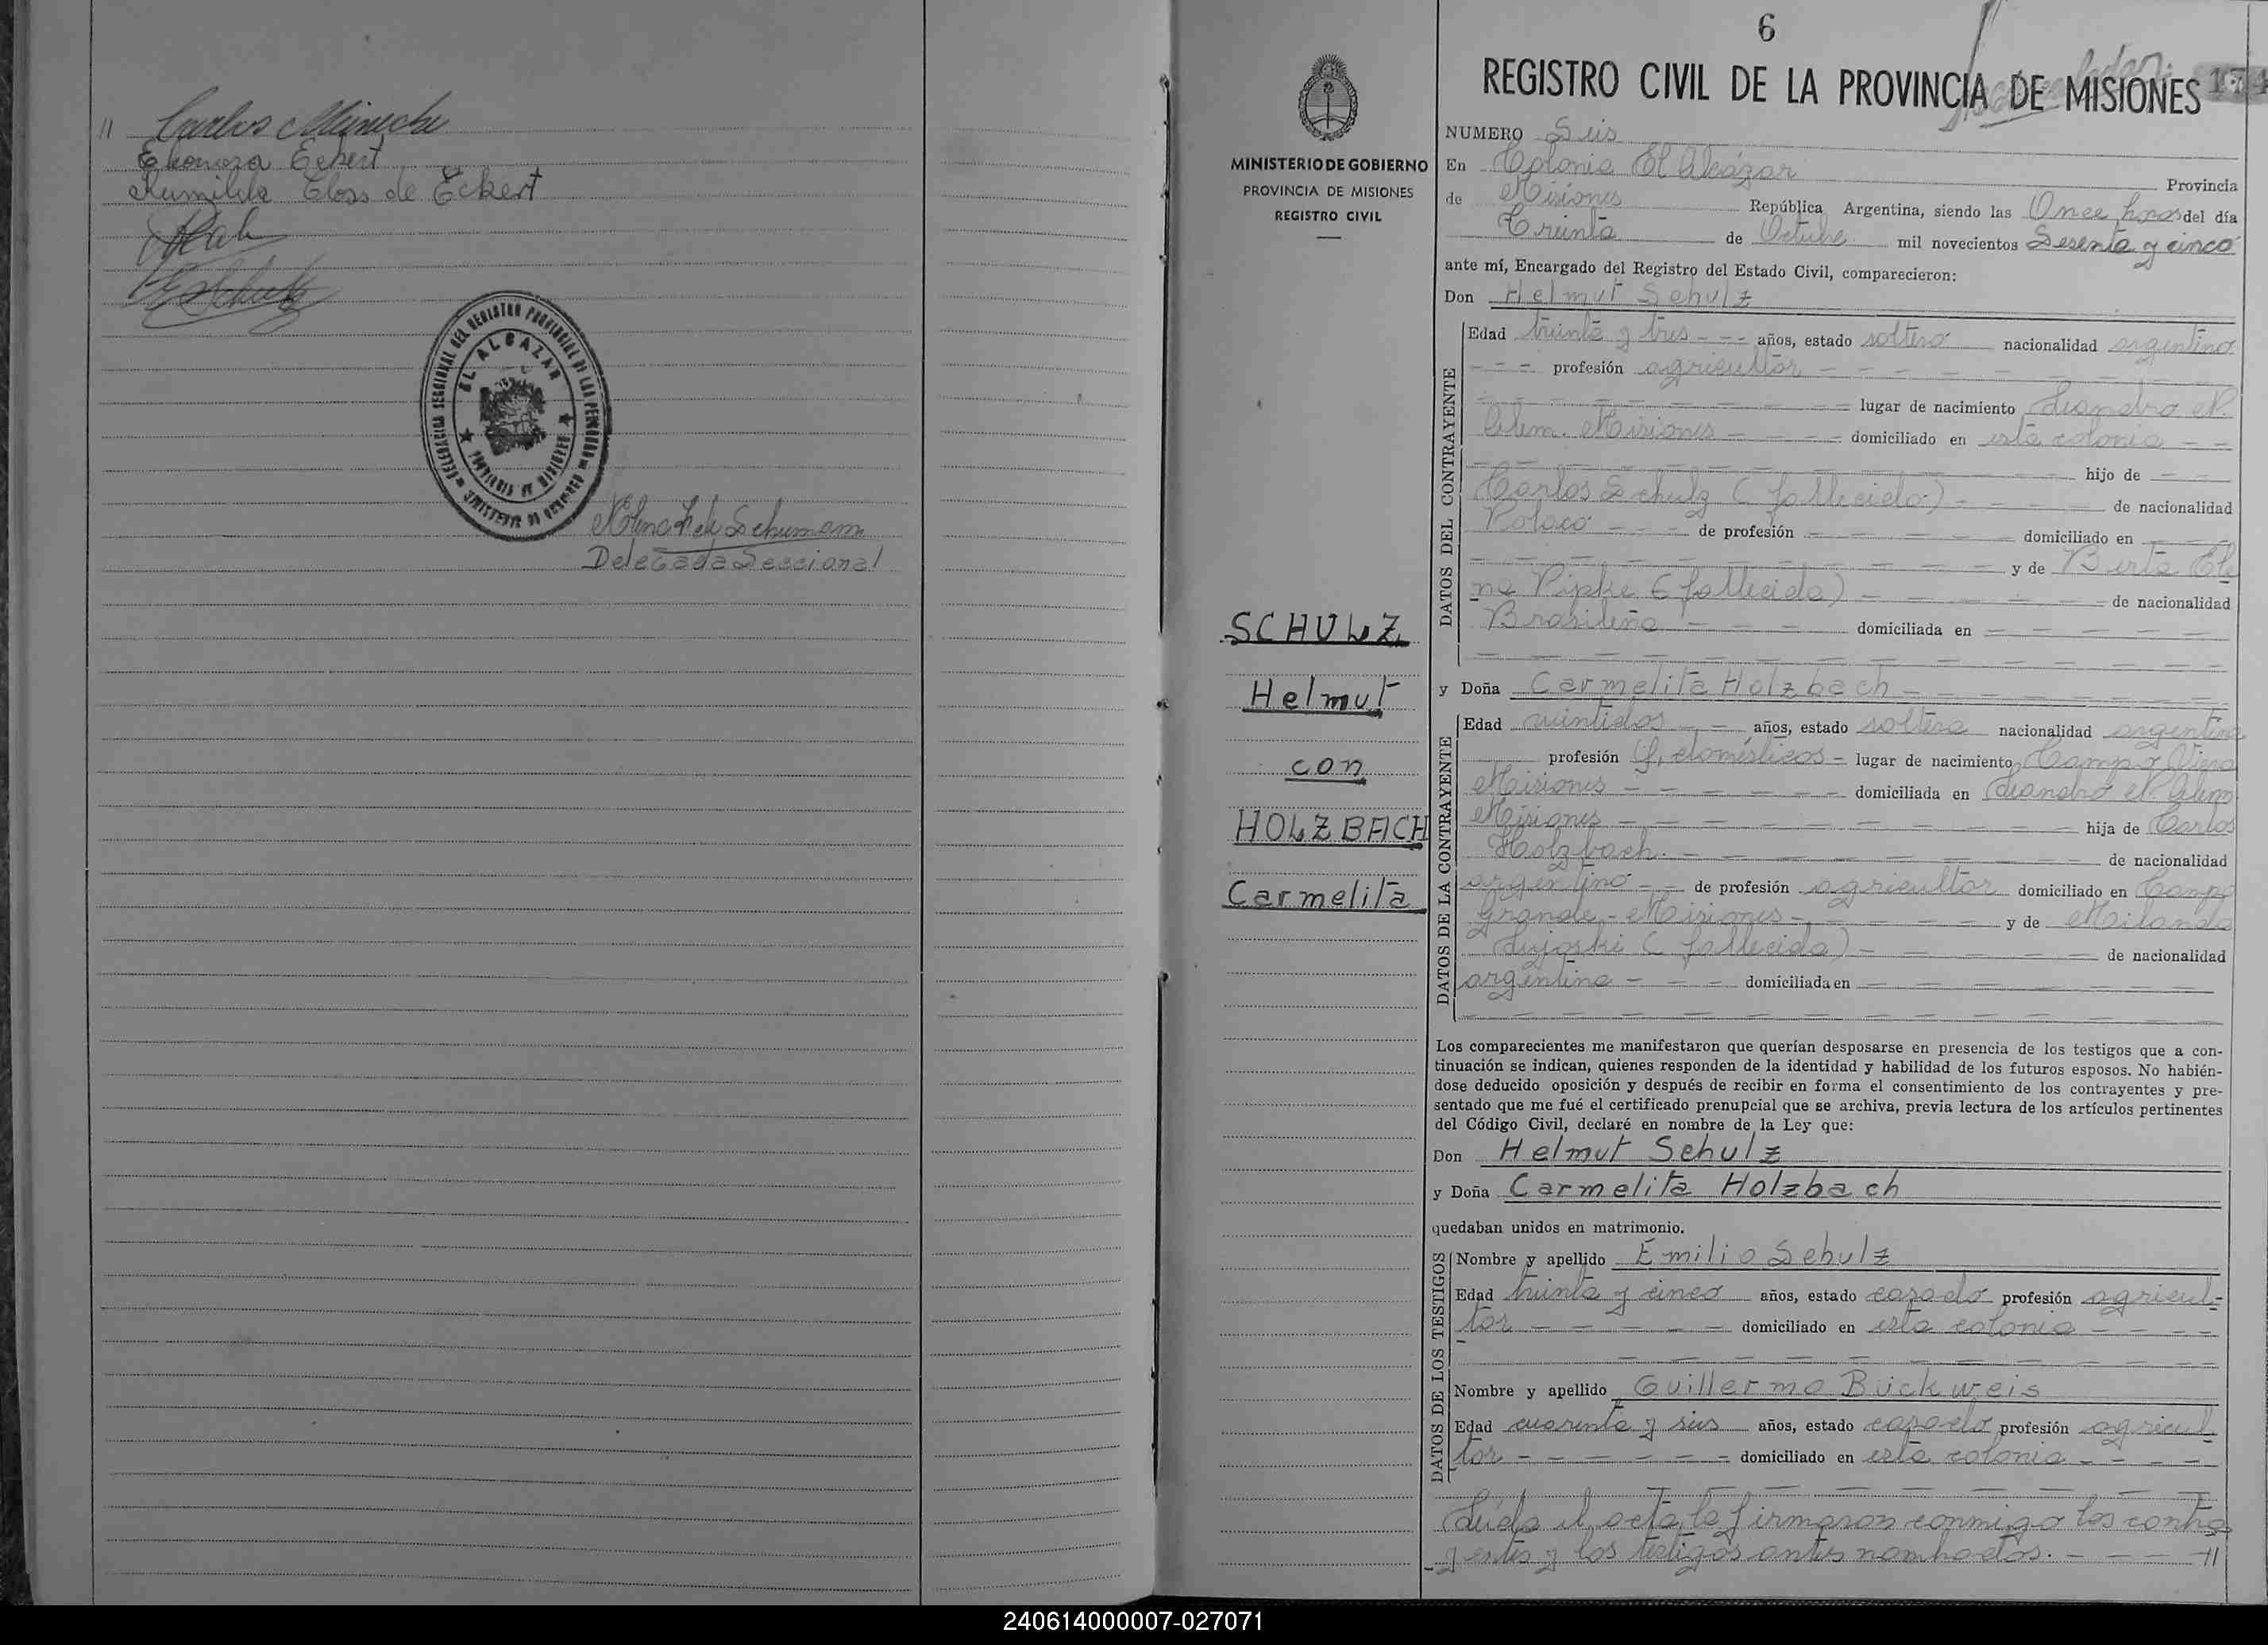 " Carlos
Eleonora Eckert
Rumilda Closs de Eckert
DELEGACION SECCIONAL DEL REGISTRO PROVINCIAL DE LAS PERSONAS
EL ALCAZAR
PROVINCIA DE MISIONES
MINISTERIO DE GOBIERNO
de Schumann
Delegada Seccional
MINISTERIO DE GOBIERNO
PROVINCIA DE MISIONES
REGISTRO CIVIL
SCHULZ
Helmut
con
HOLZBACH
Carmelita
6
REGISTRO CIVIL DE LA PROVINCIA DE MISIONES
NUMERO Seis
En Colonia El Alcázar Provincia
de Misiones República Argentina, siendo las Once horas del día
Treinta de Octubre mil novecientos Sesenta y cinco
ante mí, Encargado del Registro del Estado Civil, comparecieron:
Don Helmut Schulz
DATOS DEL CONTRAYENTE
Edad treinta y tres - - - años, estado soltero nacionalidad argentino
- - - profesión agricultor - - - - - - -
- - - - - - - - - lugar de nacimiento Leandro N.
Alem. Misiones - - - - domiciliado en esta colonia - -
- - - - - - - - - hijo de - -
Carlos Schulz (fallecido) - - - - de nacionalidad
Polaco - - - de profesión - - - - - domiciliado en - - -
- - - - - - - - - y de Berta Ele
na Pipke (fallecida) - - - - - de nacionalidad
Brasileña - - - - domiciliada en - - - - -
- - - - - - - - - - - -
y Doña Carmelita Holzbach - - - - - -
DATOS DE LA CONTRAYENTE
Edad veintidos - - años, estado soltera nacionalidad argentina
profesión Q. domésticos - lugar de nacimiento Campo Viera
Misiones - - - - - - domiciliada en Leandro N Alem
Misiones - - - - - - - - - hija de Carlos
Holzbach. - - - - - - - - de nacionalidad
argentino - - de profesión agricultor domiciliado en Campo
Grande - Misiones - - - - - y de Milanda
(fallecida) - - - - - de nacionalidad
argentina - - - - domiciliada en - - - - - - -
- - - - - - - - - - - -
Los comparecientes me manifestaron que querían desposarse en presencia de los testigos que a con-
tinuación se indican, quienes responden de la identidad y habilidad de los futuros esposos. No habién-
dose deducido oposición y después de recibir en forma el consentimiento de los contrayentes y pre-
sentado que me fué el certificado prenupcial que se archiva, previa lectura de los artículos pertinentes
del Código Civil, declaré en nombre de la Ley que:
Don Helmut Schulz
y Doña Carmelita Holzbach
quedaban unidos en matrimonio.
DATOS DE LOS TESTIGOS
Nombre y apellido Emilio Schulz
Edad treinta y cinco años, estado casado profesión agricul-
tor - - - - - - domiciliado en esta colonia - - - -
- - - - - - - - - -
Nombre y apellido Guillermo Bückweis
Edad cuarenta y seis años, estado casado profesión agricul
tor - - - - - - - domiciliado en esta colonia - - - -
- - - - - - - -
Leída el acta, la firmaron conmigo los contra
yentes y los testigos antes nombrados. - - - - "
240614000007-027071